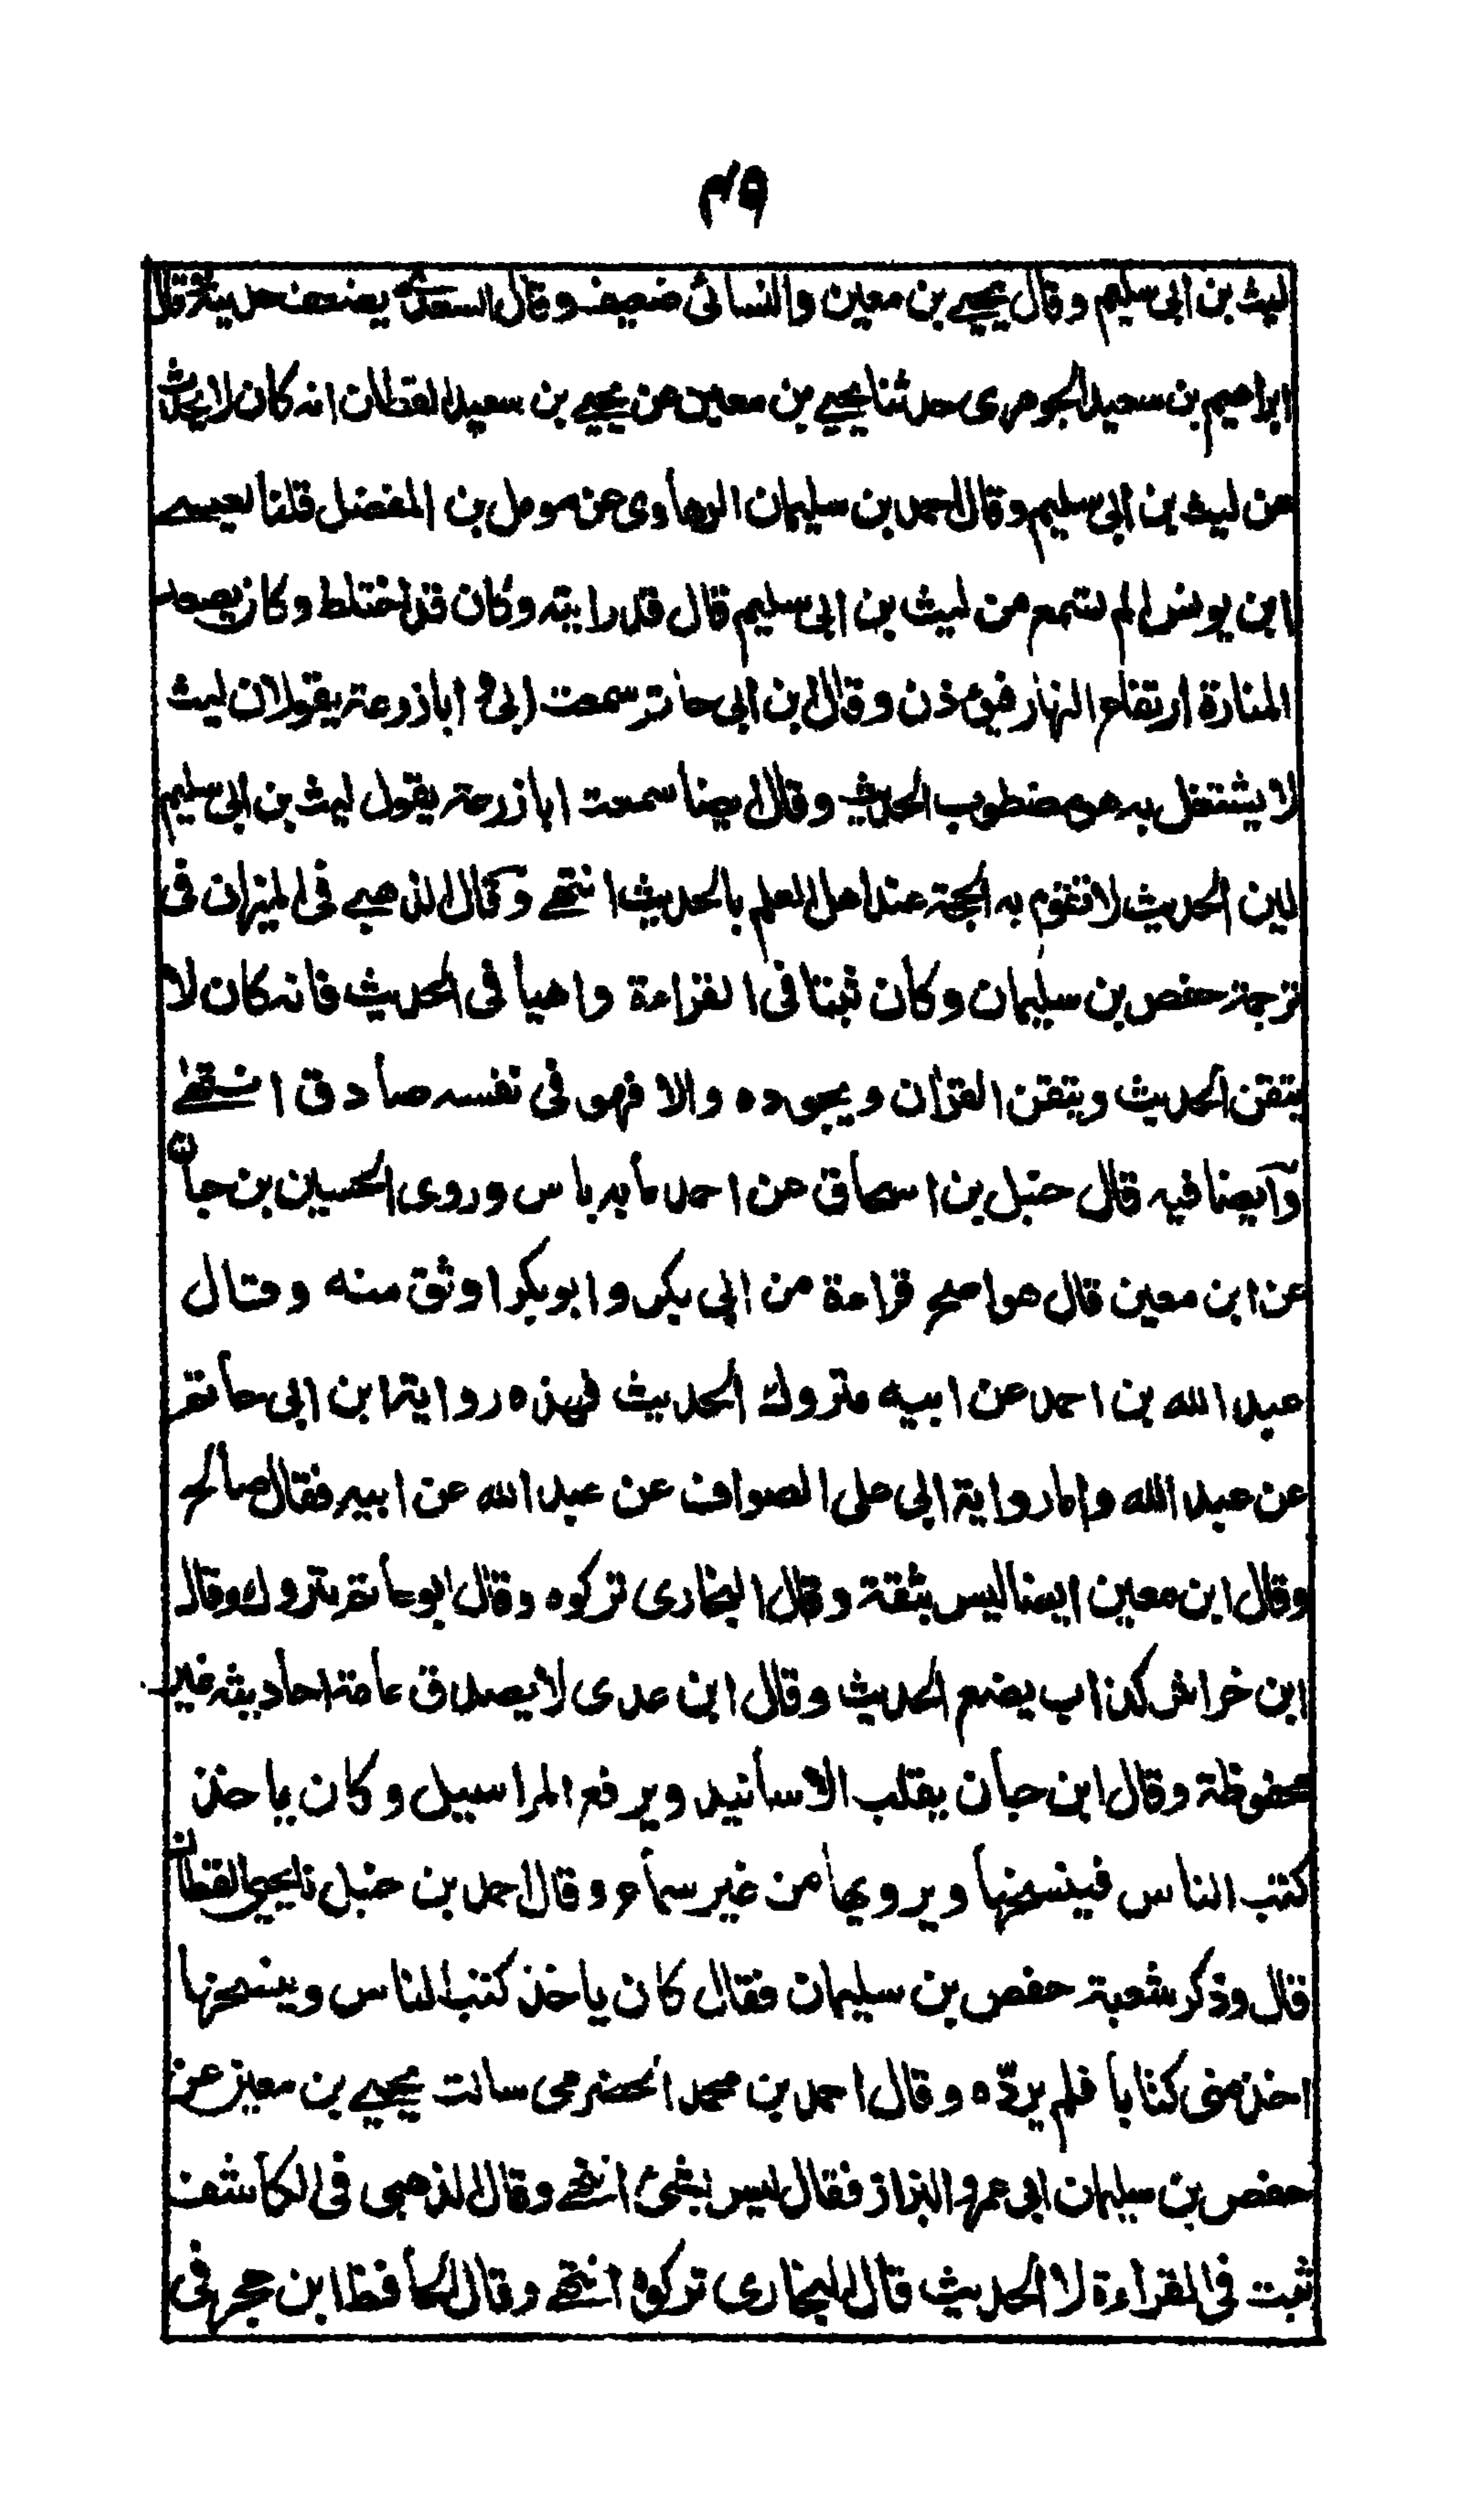 ٤٩
ليث بن ابى سليم وقال يحيے بن معين والنسائى ضعيف وقال السعدے يضعف حديثه وقال
ابراهيم بن سعيد الجوهرى حدثنا يحيے بن معين عن يحيے بن سعيد القطان انه كان لا يحدث
عن ليث بن ابى سليم وقال احمد بن سليمان الرهاوى عن مومل بن المفضل قلنا لعيسے
ابن يونس لم تسمع من ليث بن ابى سليم قال قد رايته وكان قد اختلط وكان يصعد
المنارة ارتفاع النهار فيوذن وقال ابن ابى حاتم سمعت ابى و ابا زرعة يقولان ليث
لا يشتغل به هو مضطرب الحديث وقال ايضا سمعت ابا زرعة يقول ليث بن ابى سليم
لين الحديث لا تقوم به الحجة عند اهل العلم بالحديث انتهے وقال الذهبے فى الميزان فى
ترجمة حفص بن سليمان وكان ثبتا فى القراءة واهيا فى الحديث فانه كان لا
يتقن الحديث ويتقن القرآن ويجوده والا فهو فى نفسه صادق انتهے
وآيضا فيه قال حنبل بن اسحاق عن احمد ما به باس وروى الحسين بن حبان
عن ابن معين قال هو اصح قراءة من ابى بكر وابو بكر اوثق منه وقال
عبد الله بن احمد عن ابيه متروك الحديث فهذه رواية ابن ابى حاتم
عن عبد الله واما رواية ابى على الصواف عن عبد الله عن ابيه فقال صالح
وقال ابن معين ايضا ليس بثقة وقال البخارى تركوه وقال ابو حاتم متروك وقال
ابن خراش كذاب يضع الحديث وقال ابن عدى لا يصدق عامة احاديثه غير
محفوظة وقال ابن حبان يقلب الاسانيد ويرفع المراسيل وكان ياخذ
كتب الناس فينسخها ويرويها من غير سماع وقال احمد بن حنبل نا يحيے القطان
قال وذكر شعبة حفص بن سليمان فقال كان ياخذ كتب الناس وينسخها
اخذ منى كتابا فلم يردّه وقال احمد بن محمد الحضرمى سالت يحيے بن معين عن
حفص بن سليمان ابى عمرو البزاز فقال ليس بشئ انتهے وقال الذهبى فى الكاشف
ثبت فى القراءة لا الحديث قال البخارى تركوه انتهے وقال الحافظ ابن حجر فى